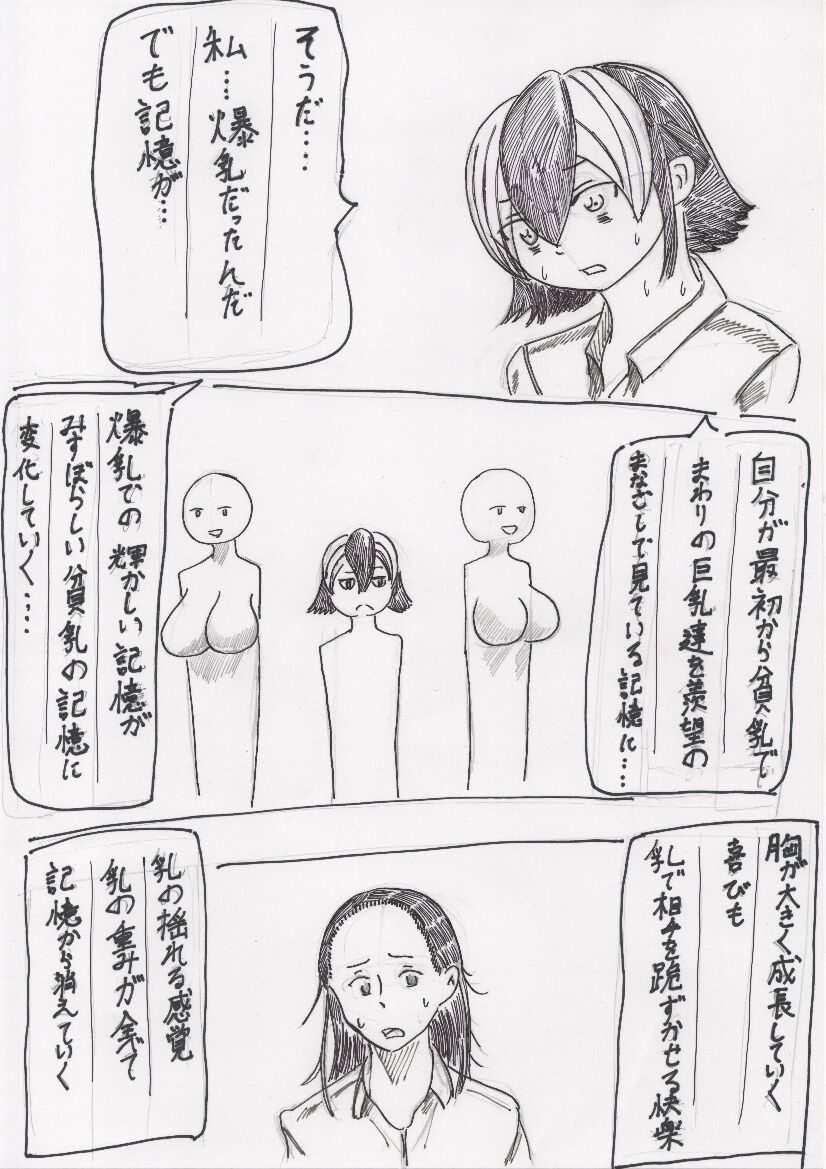 そうだ‥‥
私‥‥爆乳だったんだ
でも記憶が‥‥
自分が最初から貧乳で
まわりの巨乳達を羨望の
まなざしで見ている記憶に‥‥
爆乳での輝かしい記憶が
みすぼらしい貧乳の記憶に
変化していく‥‥
胸が大きく成長していく
喜びも
乳で相手を跪ずかせる快楽
乳の揺れる感覚
乳の重みが全て
記憶から消えていく